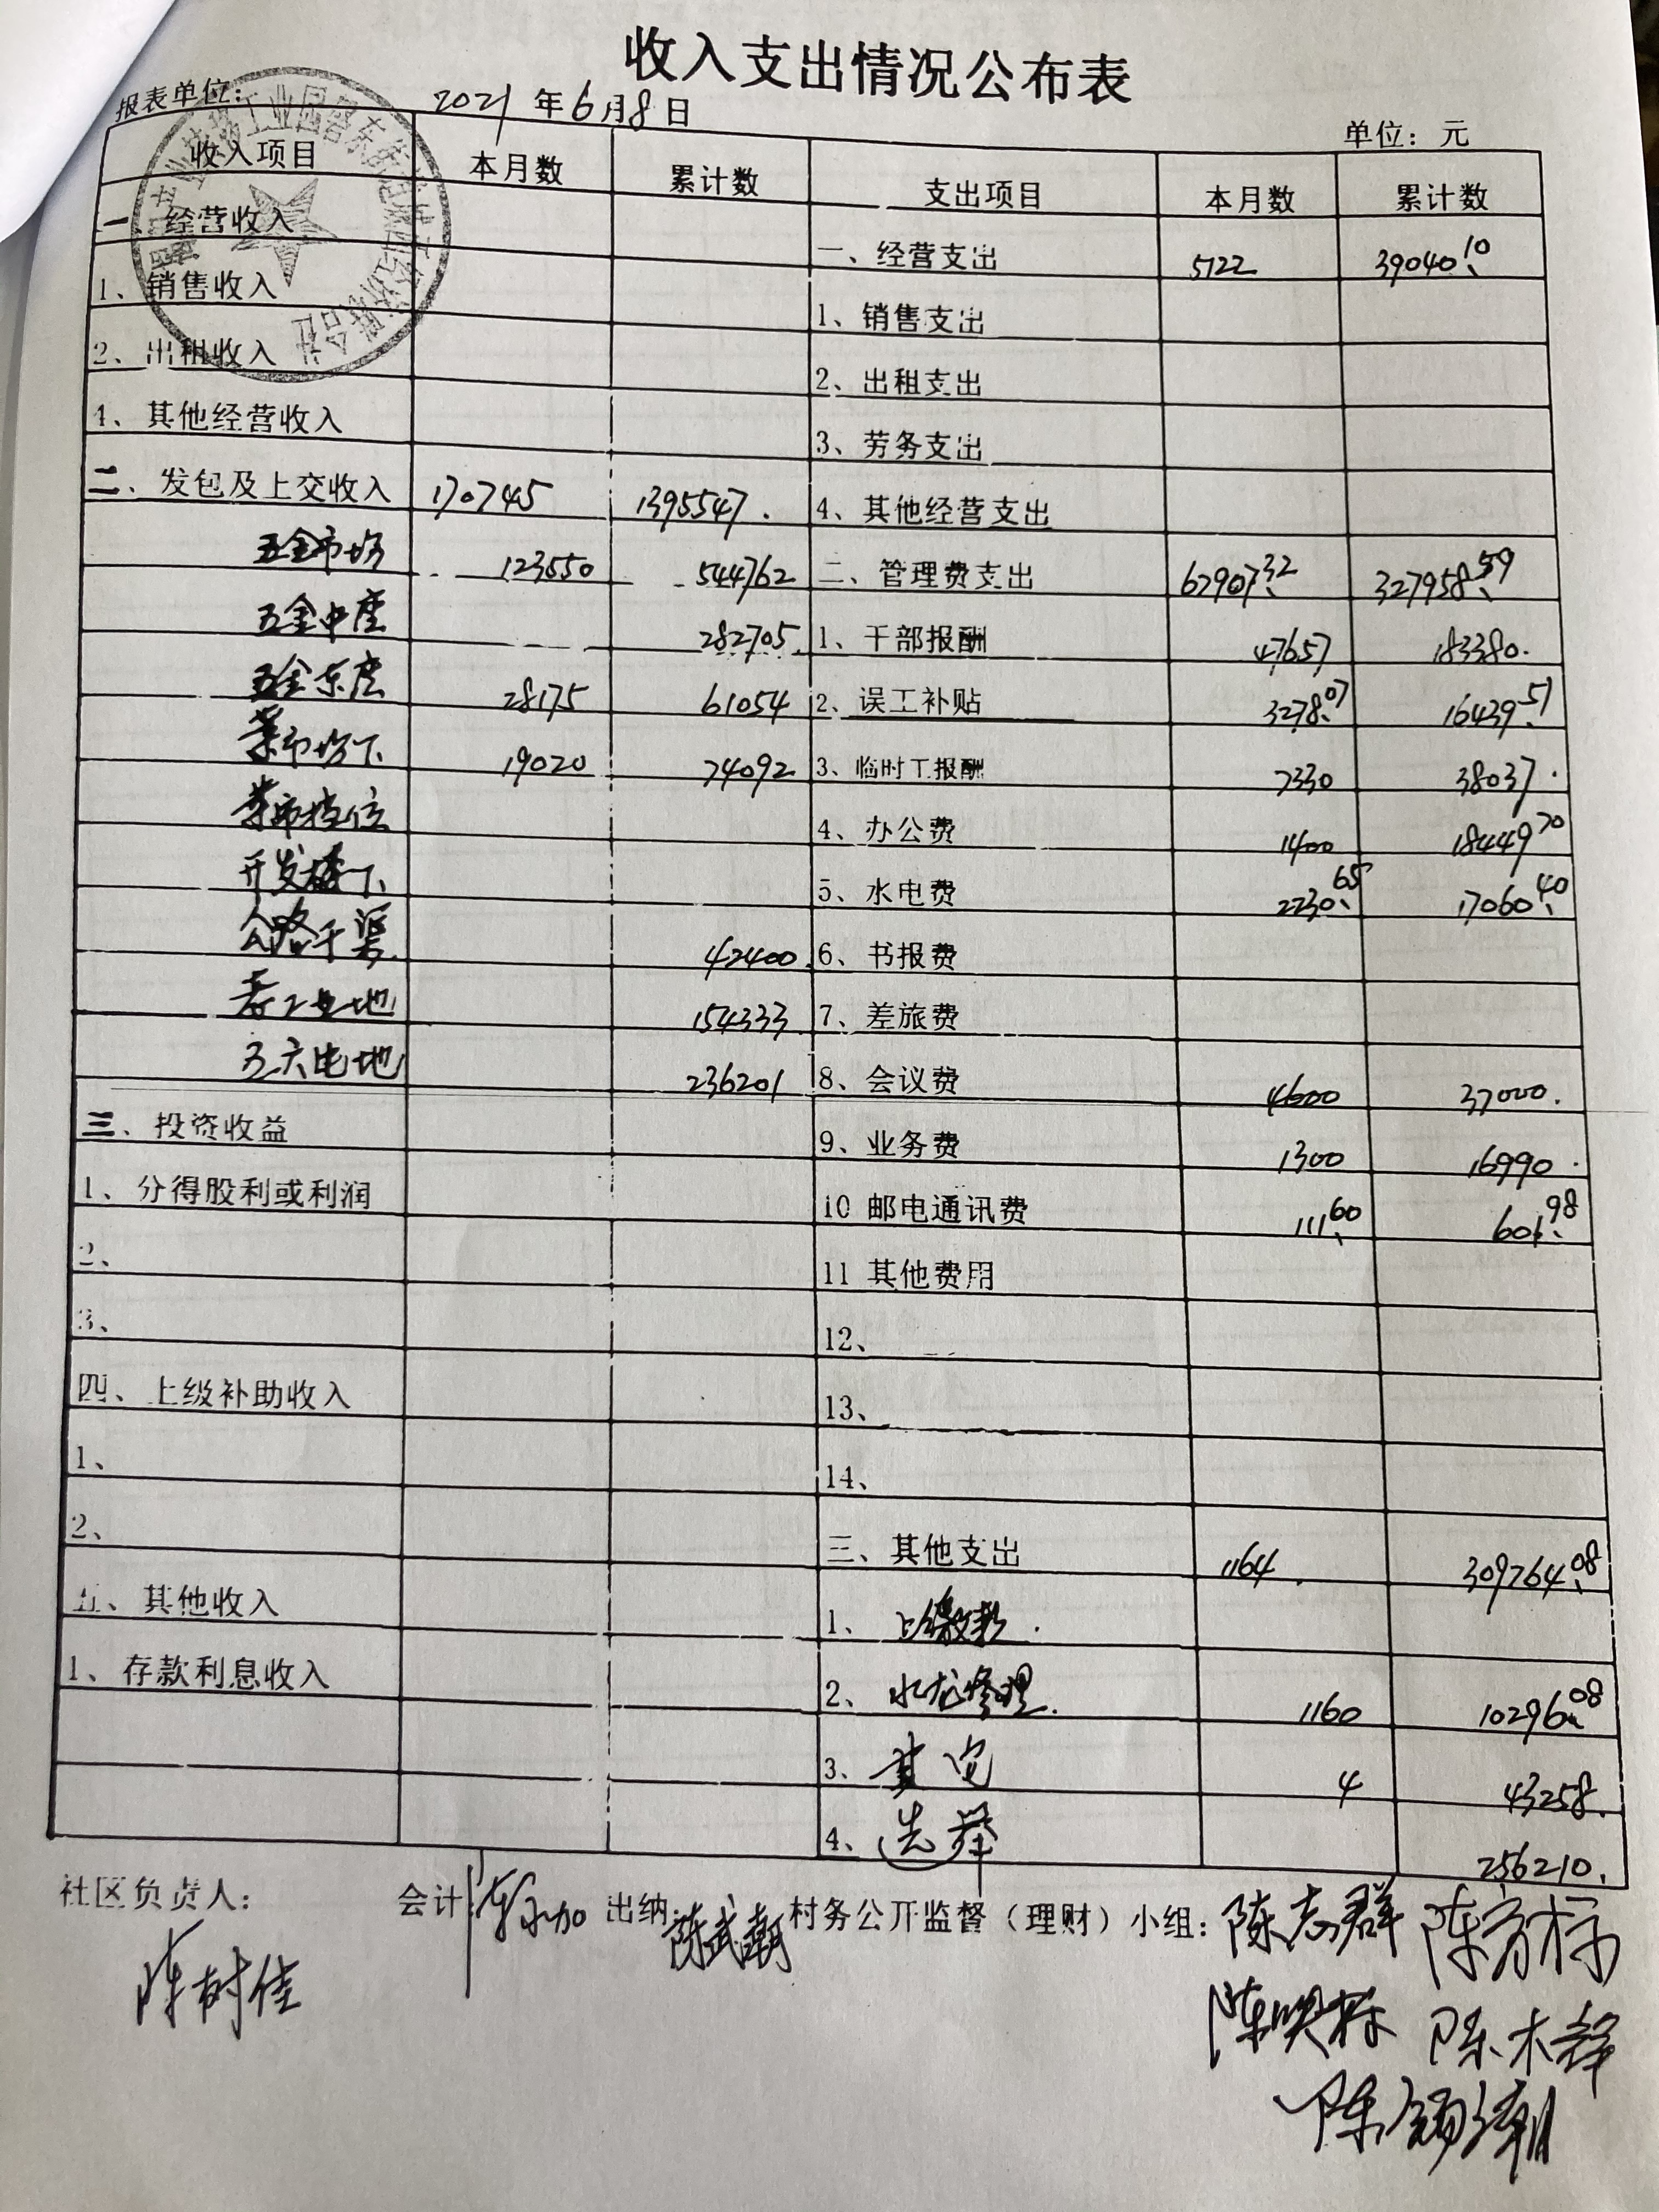 收入支出情况公布表
报表单位： 2021年6月8日 单位：元
收入项目 本月数 累计数 支出项目 本月数 累计数
一、经营收入 一、经营支出 5122 39040.10
1、销售收入 1、销售支出
2、出租收入 2、出租支出
4、其他经营收入 3、劳务支出
二、发包及上交收入 170745 1395547. 4、其他经营支出
五金市场 123550 544762 二、管理费支出 67907.32 327958.59
五金中座 282705 1、干部报酬 47657 183380.
五金东座 28175 61054 2、误工补贴 3278.07 16439.51
菜市场下 19020 74092 3、临时工报酬 7330 38037.
菜市档位 4、办公费 1400 18449.70
开发楼下 5、水电费 2230.65 17060.40
公路干渠 42400 6、书报费
154333 7、差旅费
236201 8、会议费 4600 37000.
三、投资收益 9、业务费 1300 16990.
1、分得股利或利润 10 邮电通讯费 111.60 601.98
2、 11 其他费用
3、 12、
四、上级补助收入 13、
1、 14、
2、 三、其他支出 1164. 309764.08
五、其他收入 1、上缴款.
1、存款利息收入 2、水龙修理. 1160 10296.08
3、其它 4 43258.
4、选举 256210.
社区负责人： 会计： 出纳：陈武潮 村务公开监督（理财）小组：陈志群
陈树佳
陈木辉
陈锡潮